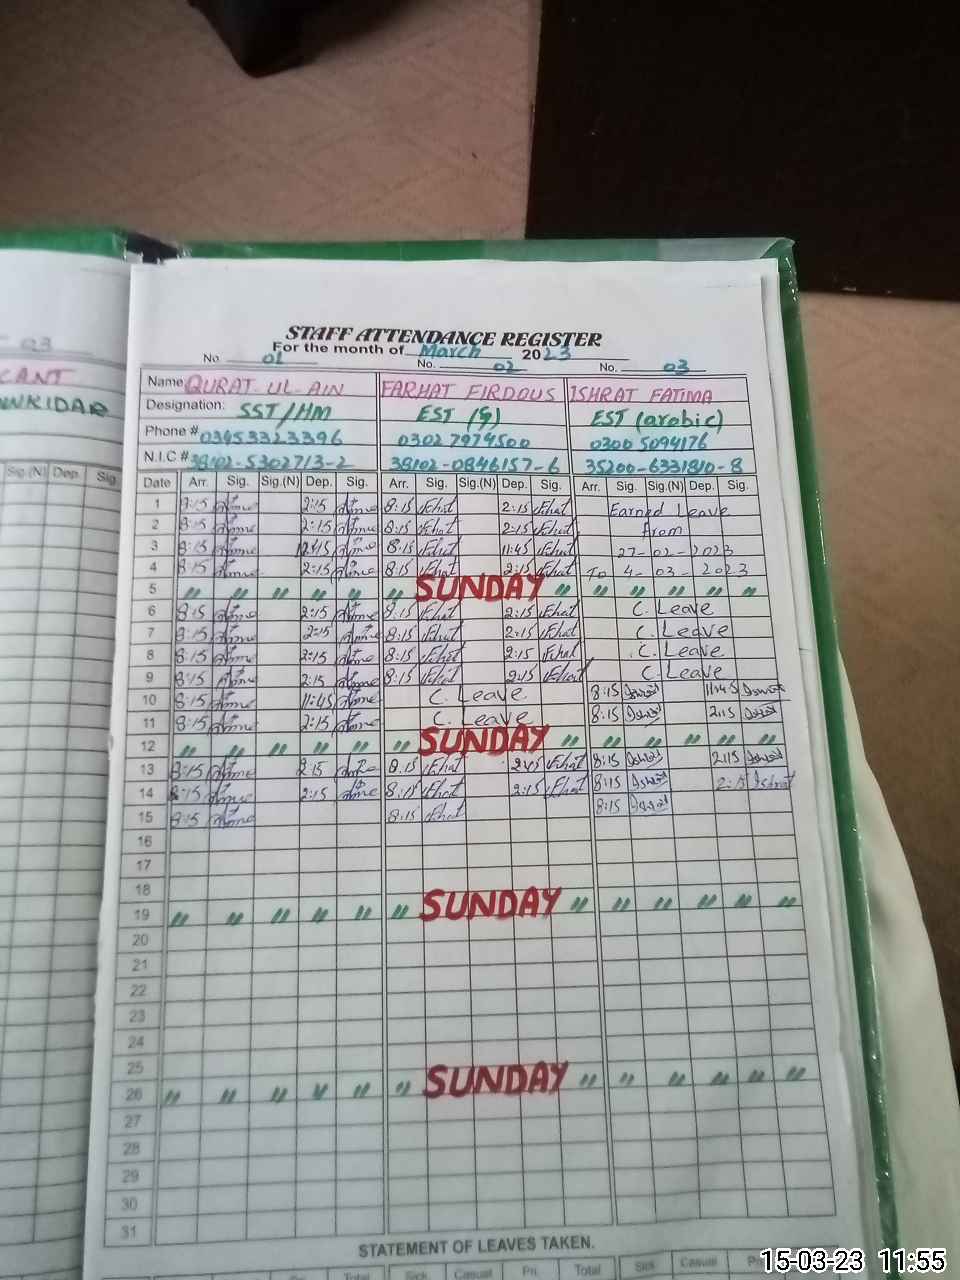 03
CANT
WKIDAR
Sig.(N) Dep. Sig.
STAFF ATTENDANCE REGISTER
For the month of March 2023
No. 01 No. 02 No. 03
Name QURAT-UL-AIN FARHAT FIRDOUS ISHRAT FATIMA
Designation: SST/HM EST (g) EST (arabic)
Phone # 03453323396 03027974500 03005094176
N.I.C # 38102-5302713-2 38102-0846157-6 35200-6331810-8
Date Arr. Sig. Sig.(N) Dep. Sig. Arr. Sig. Sig.(N) Dep. Sig. Arr. Sig. Sig.(N) Dep. Sig.
1 8:15 2:15 8:15 2:15 Earned Leave
2 8:15 2:15 8:15 2:15 from
3 8:15 8:15 11:45 27-02-2023
4 8:15 2:15 8:15 2:15 To 4-03-2023
5 " " " " " " SUNDAY " " " " " "
6 8:15 2:15 8:15 2:15 C. Leave
7 8:15 2:15 8:15 2:15 C. Leave
8 8:15 2:15 8:15 2:15 C. Leave
9 8:15 2:15 8:15 2:15 C. Leave
10 8:15 11:45 C. Leave 8:15 11:45
11 8:15 2:15 C. Leave 8:15 2:15
12 " " " " " " SUNDAY " " " " " "
13 8:15 2:15 8:15 2:15 8:15 2:15
14 8:15 2:15 8:15 2:15 8:15 2:15 Ishrat
15 8:15 8:15 8:15
16
17
18
19 " " " " " " SUNDAY " " " " " "
20
21
22
23
24
25
26 " " " " " " SUNDAY " " " " " "
27
28
29
30
31
STATEMENT OF LEAVES TAKEN.
Total Sick Casual Pri. Total Sick Casual
15-03-23 11:55